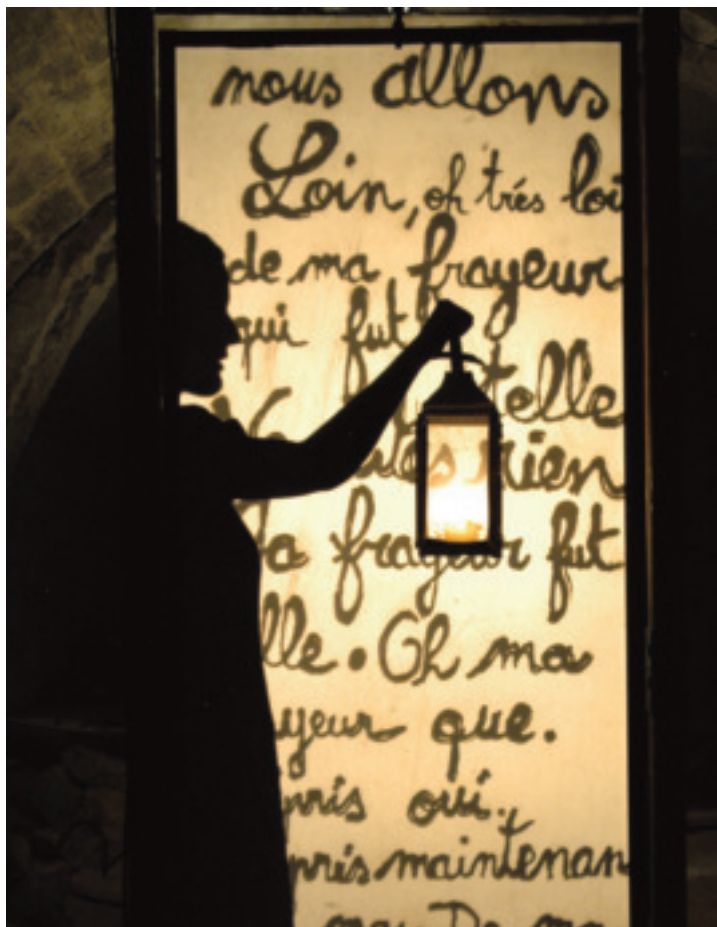 nous allons
Loin, oh trés loi
de ma frayeur
qui fut
telle
rien
la frayeur fut
lle. Oh ma
yeur que.
pris oui.
pris maintenan
ma. De ma